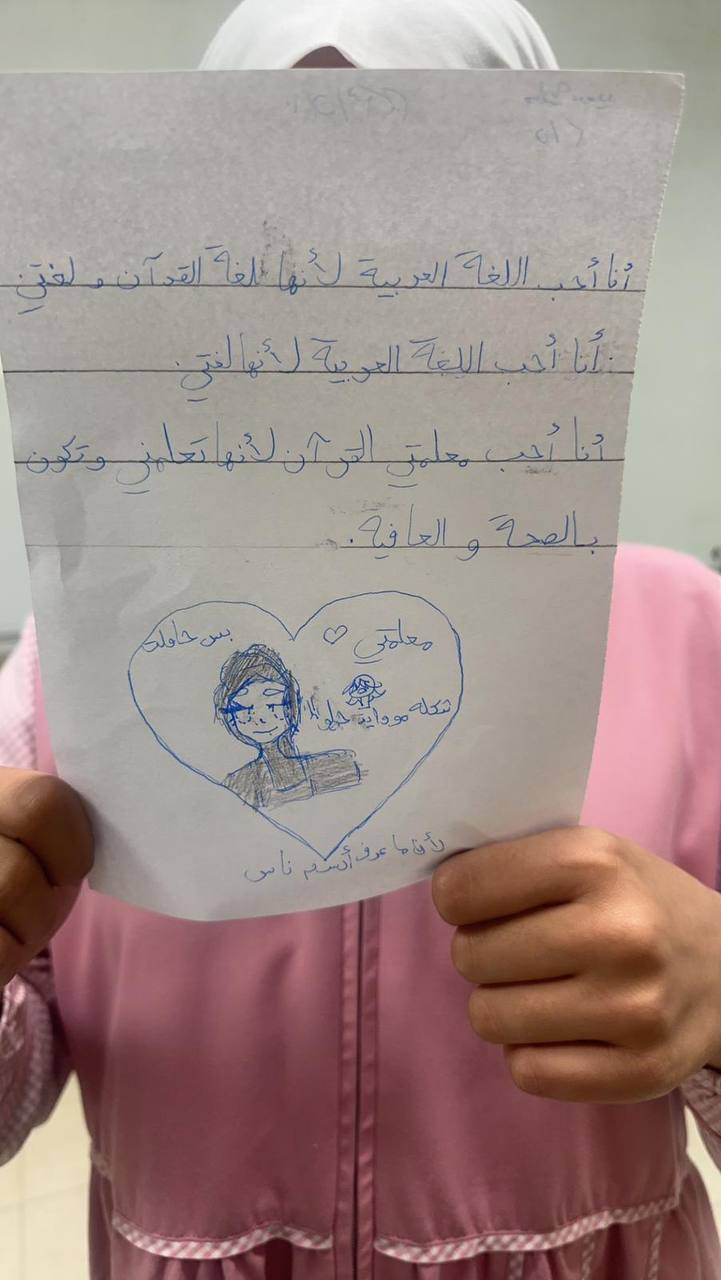 أنا أحب اللغة العربية لأنها لغة القرآن و لغتي
أنا أحب اللغة العربية لأنها لغتي.
أنا أحب معلمتي القرآن لأنها تعلمني وتكون
بالصحة و العافية.
معلمتي ♡
بس حاولت
شكله مو وايد حلو
لأن ما عرف أرسم ناس